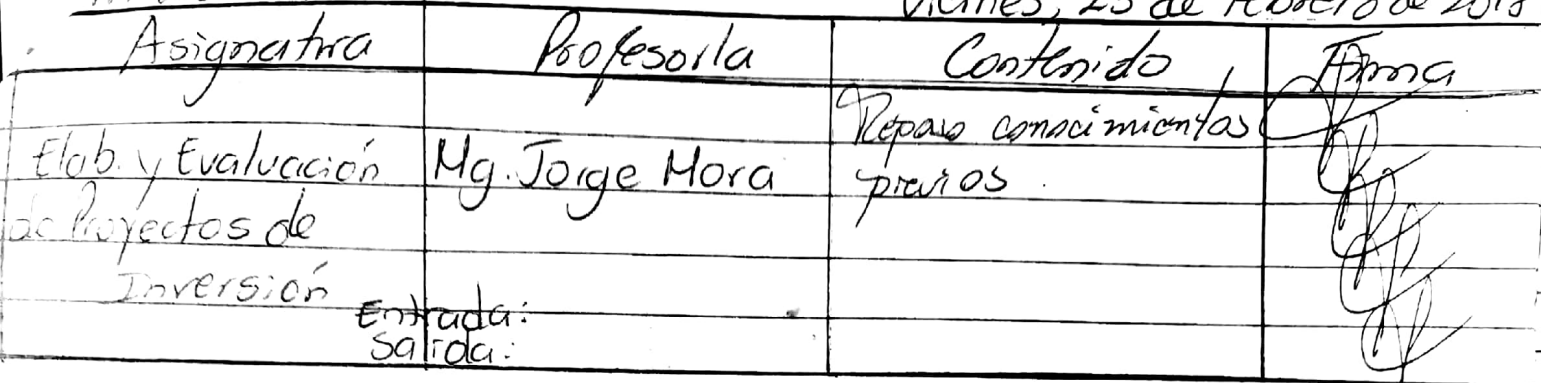 Viernes, 23 de Febrero de 2018
Asignatura Profesor/a Contenido Firma
Repaso conocimientos
Elab. y Evaluación Mg. Jorge Mora previos.
de Proyectos de
Inversión
Entrada:
Salida: